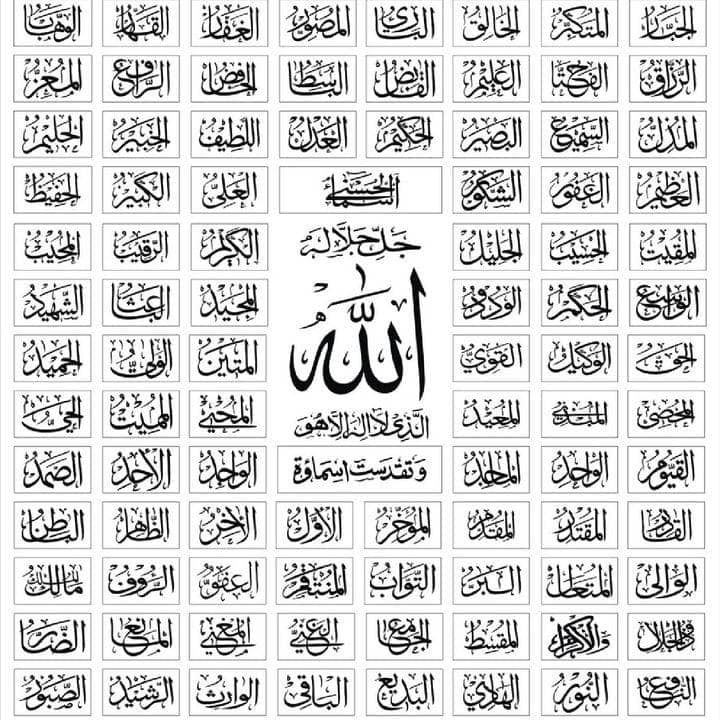 الجبار المتكبر الخالق الباري المصور الغفار القهار الوهاب
الرزاق الفتاح العليم القابض الباسط الخافض الرافع المعز
المذل السميع البصير الحكيم العدل اللطيف الخبير الحليم
العظيم الغفور الشكور الحسنى العلي الكبير الحفيظ
المقيت الحسيب الجليل جل جلاله الكريم الرقيب المجيب
الواسع الحكيم الودود الله المجيد الباعث الشهيد
الحق الوكيل القوي المتين الولي الحميد
المحصي المبدئ المعيد الذي لا اله الا هو المحيي المميت الحي
القيوم الواجد الماجد وتقدست اسماؤه الواحد الأحد الصمد
القادر المقتدر المقدم المؤخر الأول الآخر الظاهر الباطن
الوالي المتعال البر التواب المنتقم العفو الرؤوف مالك الملك
ذو الجلال والإكرام المقسط الجامع الغني المغني المانع الضار
النافع النور الهادي البديع الباقي الوارث الرشيد الصبور